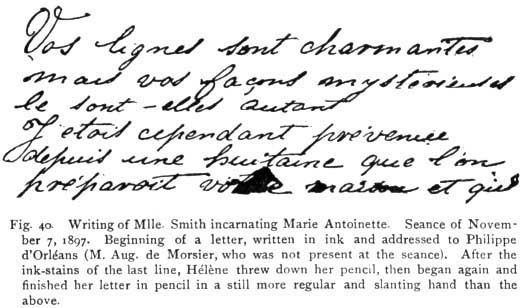 Vos lignes sont charmantes
mais vos façons mystérieuses
le sont-elles autant
J'étois cependant prévenue
depuis une huitaine que l'on
préparoit votre maison et que
Fig. 40. Writing of Mlle. Smith incarnating Marie Antoinette. Seance of Novem-
ber 7, 1897. Beginning of a letter, written in ink and addressed to Philippe
d'Orléans (M. Aug. de Morsier, who was not present at the seance). After the
ink-stains of the last line, Hélène threw down her pencil, then began again and
finished her letter in pencil in a still more regular and slanting hand than the
above.